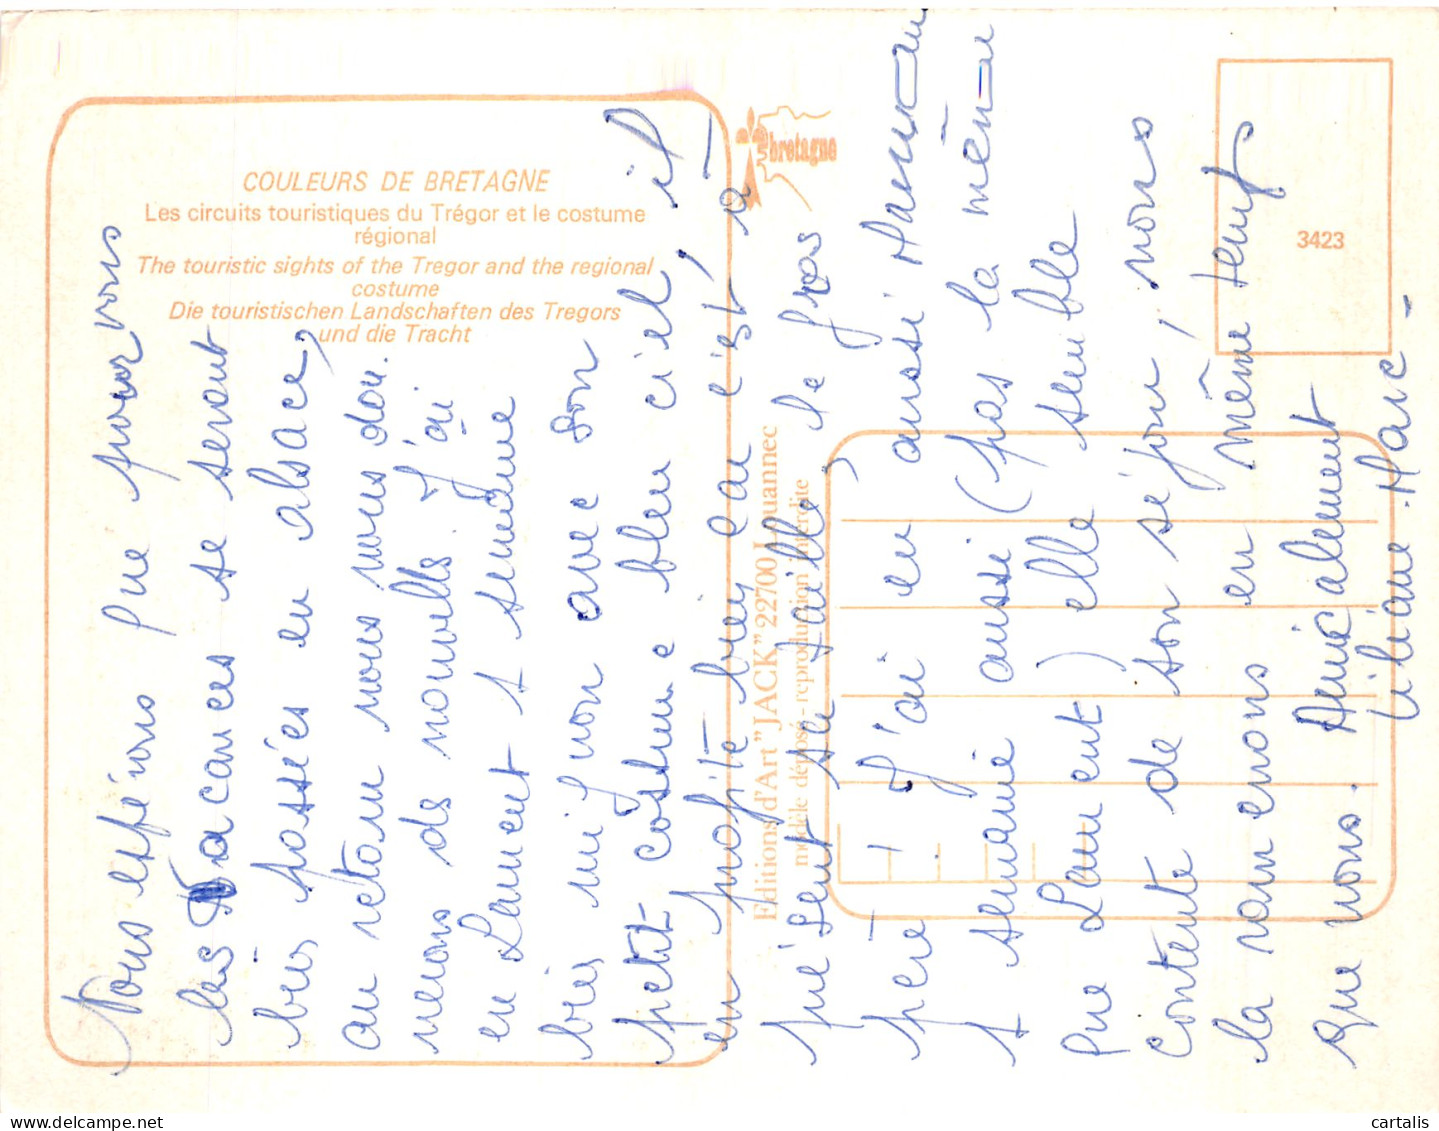 COULEURS DE BRETAGNE
Les circuits touristiques du Trégor et le costume
régional
The touristic sights of the Tregor and the regional
costume
Die touristischen Landschaften des Tregors
und die Tracht
bretagne
3423
Editions d'Art "JACK" 22700 Louannec
modèle déposé - reproduction interdite
Nous espérons que pour vous
les Vacances se seront
bien passées en alsace,
au retour nous vous don.
nerons ds nouvells. J'ai
eu Laurent 1 semaine
bien mignon avec son
petit costume bleu ciel, il
en profite bien car c'est, à
qui sent sa taille le gros
père! J'ai eu aussi Maman
1 semaine aussi (pas la même
que Laurent) elle semble
contente de son séjour, nous
la ramenons en même temps
que nous. Amicalement
Liliane. Marc -